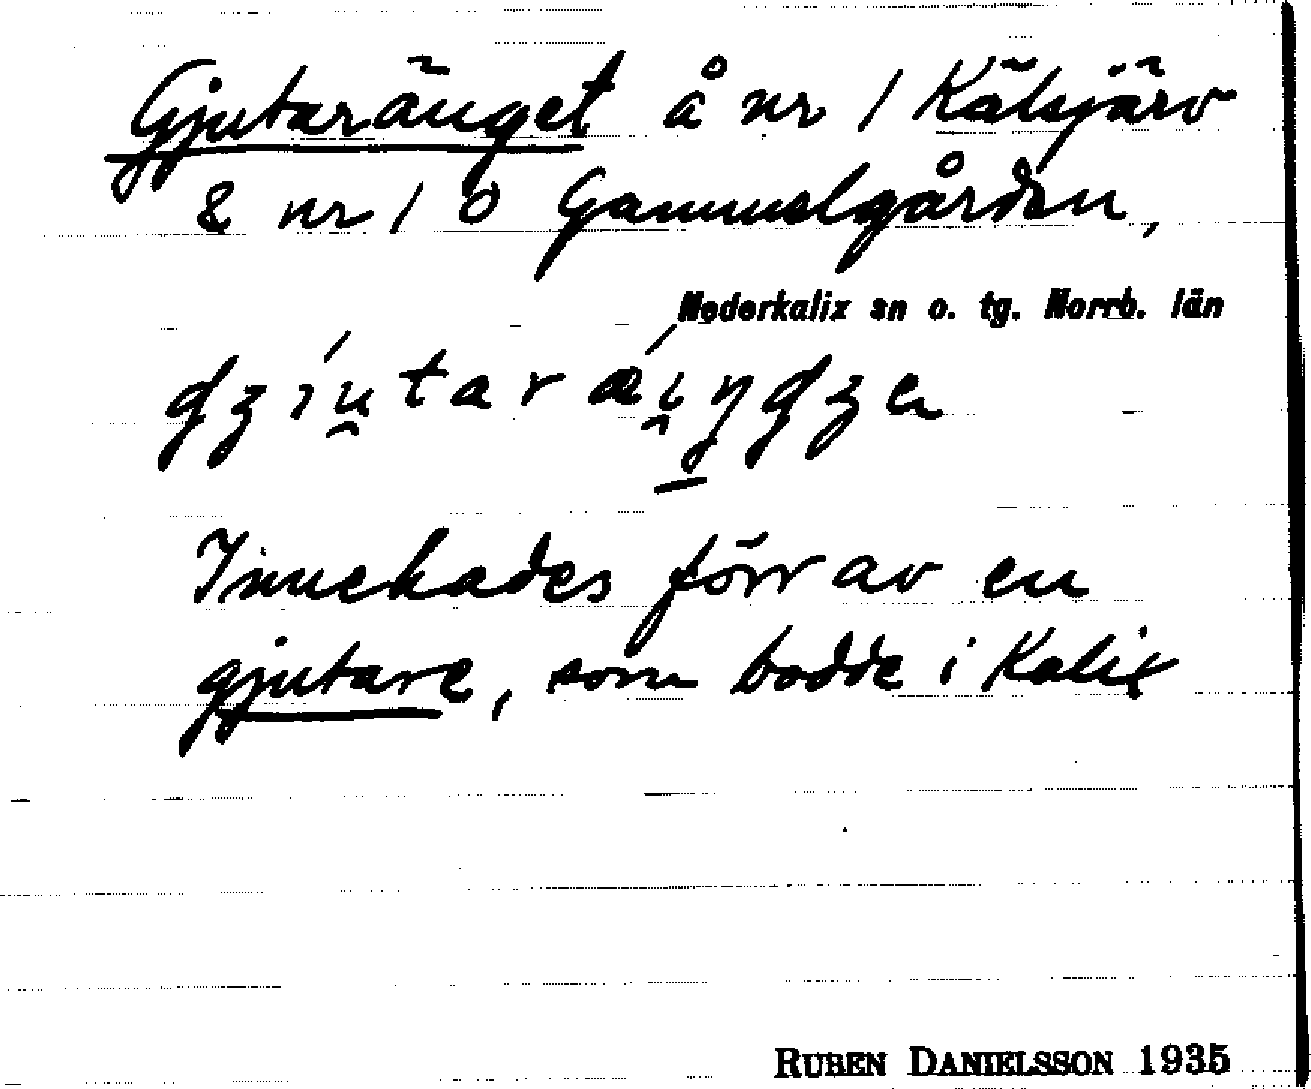 Gjutaränget å nr 1 Kälsjärv
& nr 1 o Gammelgården,
Nederkalix sn o. tg. Norrb. län
Innehades förr av en
gjutare, som bodde i Kalix
RUBEN DANIELSSON 1935